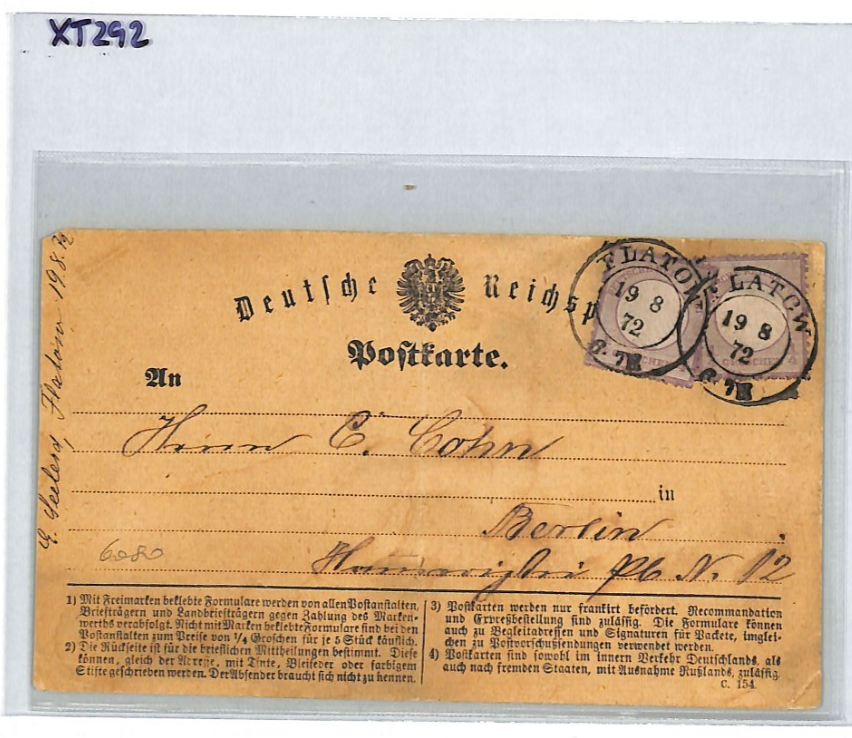 XT292
Deutsche Reichsp
Postkarte.
FLATOW
19 8
72
6. 7N
FLATOW
19 8
72
6. 7N
GROSCHEN
An
Herrn C. Cohn
in
Berlin
Pl. N. 12
6080
Flatow 19.8.72
1) Mit Freimarken beklebte Formulare werden von allen Postanstalten,
Briefträgern und Landbriefträgern gegen Zahlung des Marken-
werths verabfolgt. Nicht mit Marken beklebte Formulare sind bei den
Postanstalten zum Preise von 1/4 Groschen für je 5 Stück käuflich.
2) Die Rückseite ist für die brieflichen Mittheilungen bestimmt. Diese
können, gleich der Adresse, mit Tinte, Bleifeder oder farbigem
Stifte geschrieben werden. Der Absender braucht sich nicht zu nennen.
3) Postkarten werden nur frankirt befördert. Recommandation
und Expreßbestellung sind zulässig. Die Formulare können
auch zu Begleitadressen und Signaturen für Packete, imglei-
chen zu Postvorschußsendungen verwendet werden.
4) Postkarten sind sowohl im innern Verkehr Deutschlands, als
auch nach fremden Staaten, mit Ausnahme Rußlands, zulässig.
C. 154.